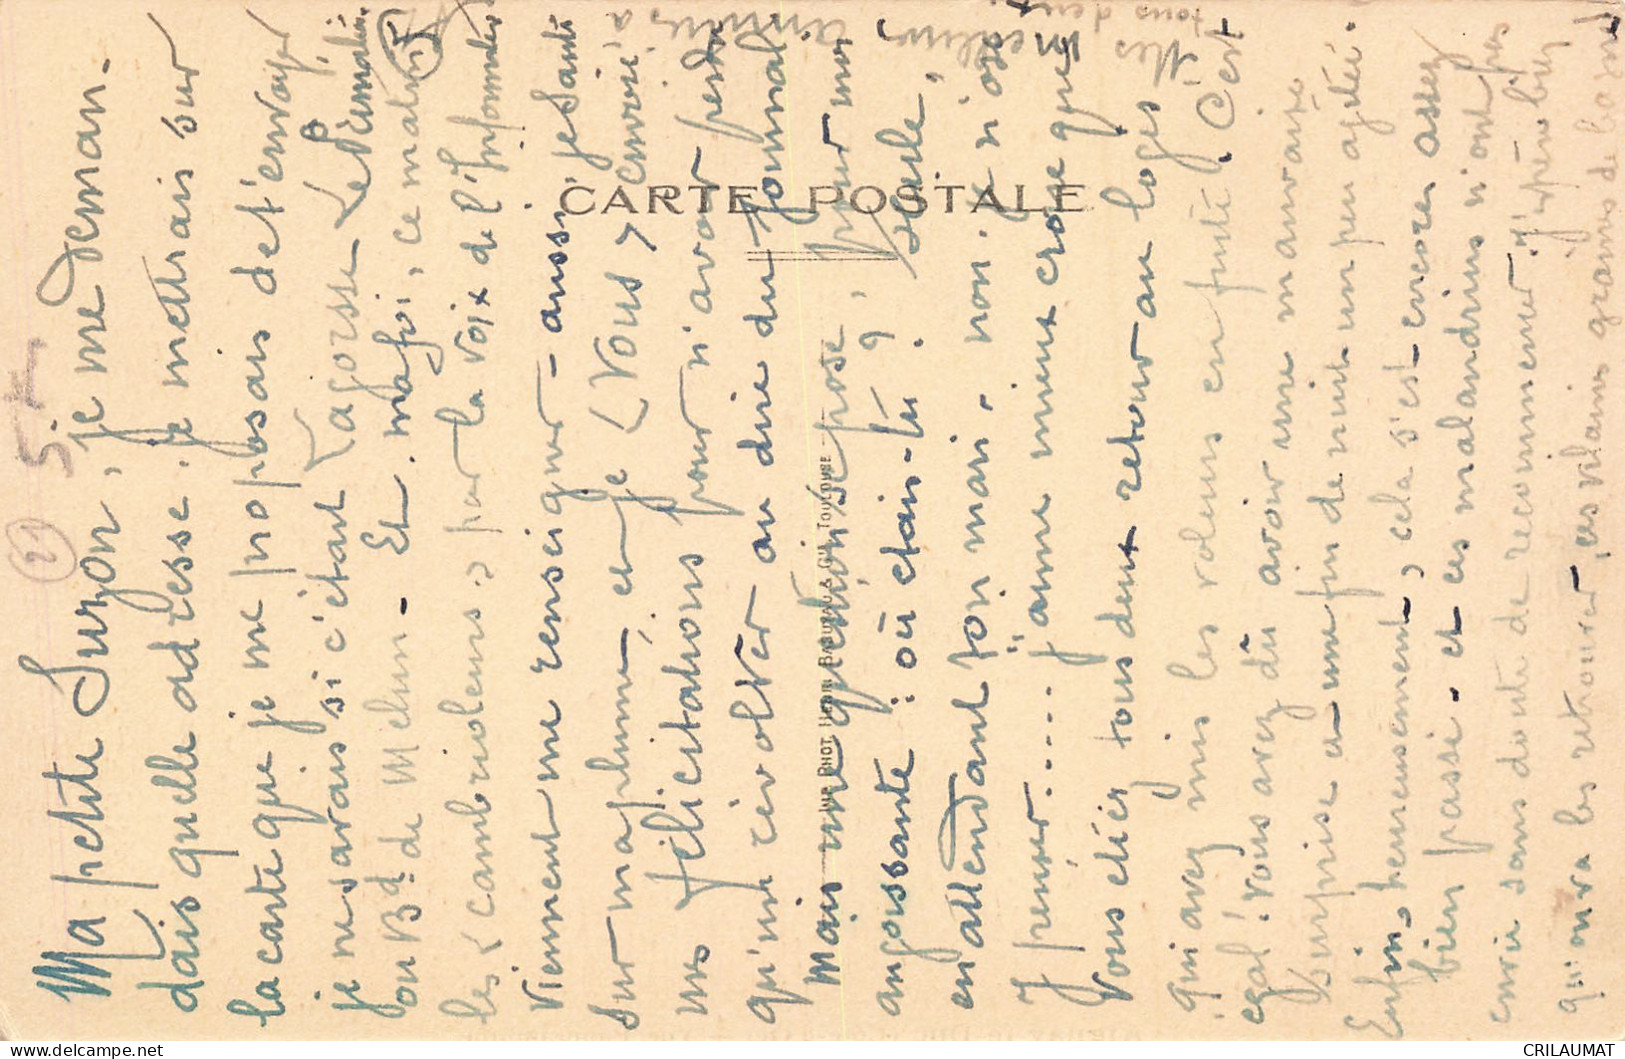 Ma petite Suzon, je me deman-
dais quelle adresse je mettrais sur
la carte que je me proposais de t'envoyer
je ne savais si c'était Lagorsse, Le Piémalin
ou Bd de Melun - Et, ma foi, ce matin
les "cambrioleurs" par la voix de l'Informateur
viennent me renseigner - aussi je saute
sur ma plume, et je (vous) envoie
mes félicitations pour n'avoir perdu
qu'un révolver au dire du journal
Mais une question se pose, pour moi
angoissante : où étais-tu ? seule,
en attendant ton mari. non. je n'ose
y penser..... j'aime mieux croire que
vous étiez tous deux retour au logis
qui avez mis les voleurs en fuite. C'est
égal ! vous avez dû avoir une mauvaise
surprise et une fin de nuit un peu agitée.
Enfin, heureusement, cela s'est encore assez
bien passé. et ces malandrins n'ont pas
envie sans doute de recommencer. J'espère bien
qu'on va les retrouver, ces vilains
Mes
meilleures
amitiés à
tous deux
CARTE POSTALE
IMP. PHOT. HENRI BASUYAU & Cie TOULOUSE
21
CRILAUMAT